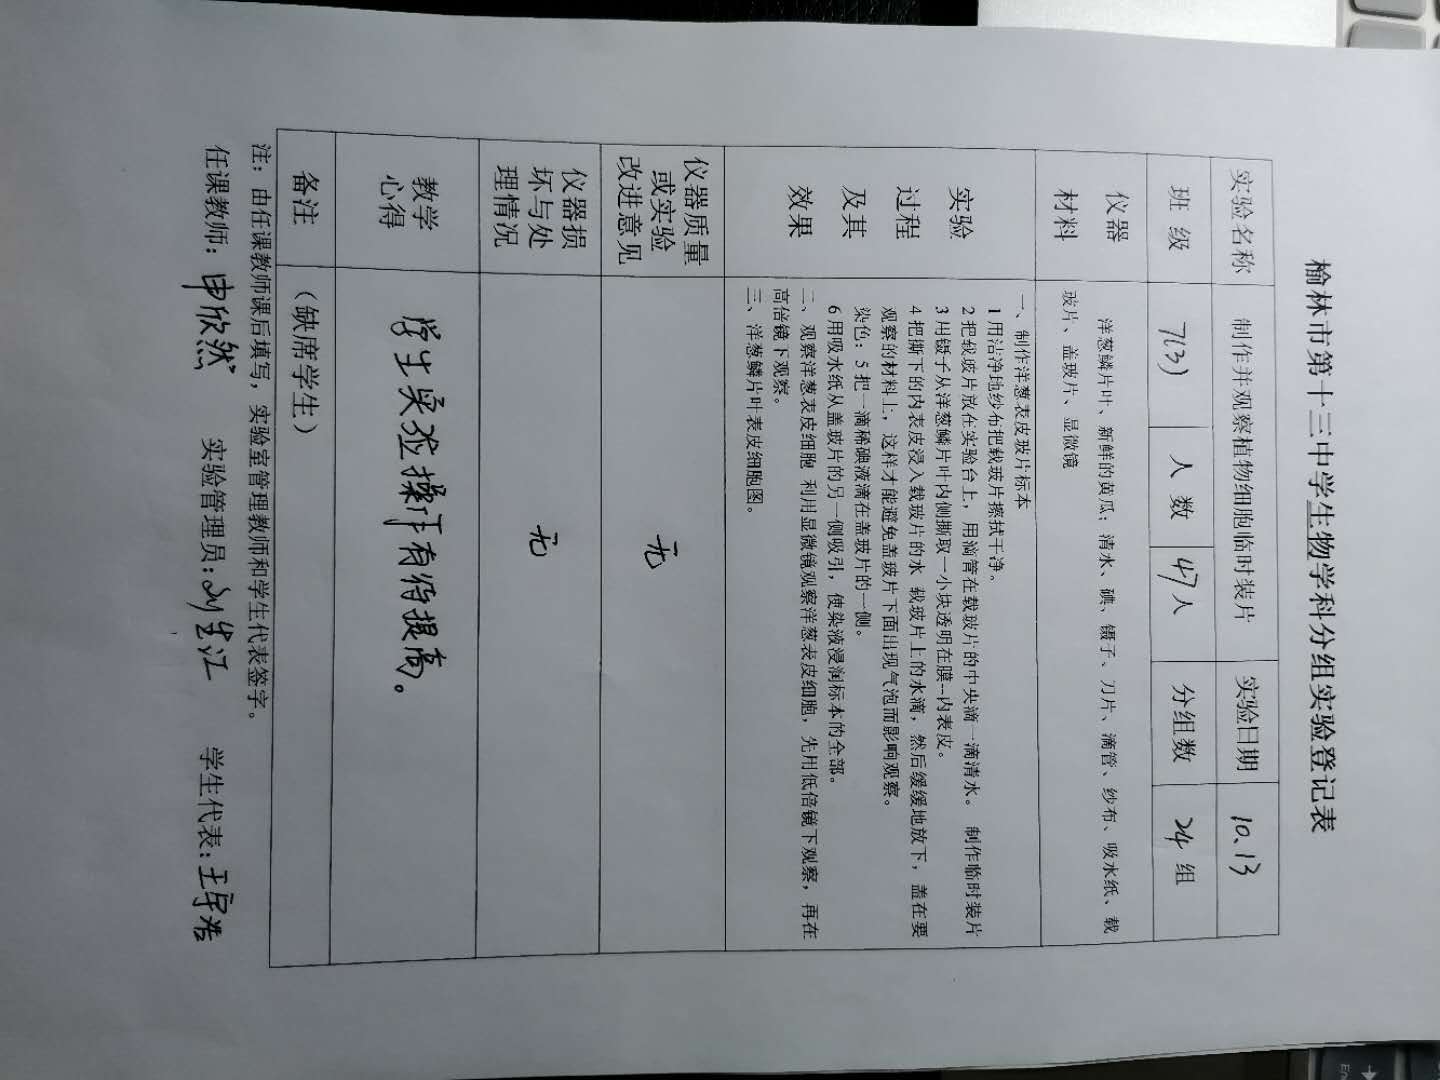 榆林市第十三中学生物学科分组实验登记表
实验名称 制作并观察植物细胞临时装片 实验日期 10.13
班 级 7(3) 人 数 47人 分组数 24 组
仪器
材料
洋葱鳞片叶、新鲜的黄瓜；清水、碘、镊子、刀片、滴管、纱布、吸水纸、载
玻片、盖玻片、显微镜
实验
过程
及其
效果
一、制作洋葱表皮玻片标本
1 用洁净地纱布把载玻片擦拭干净。
2 把载玻片放在实验台上，用滴管在载玻片的中央滴一滴清水。 制作临时装片
3 用镊子从洋葱鳞片叶内侧撕取一小块透明在膜--内表皮。
4 把撕下的内表皮浸入载玻片的水 载玻片上的水滴，然后缓缓地放下，盖在要
观察的材料上，这样才能避免盖玻片下面出现气泡而影响观察。
染色：5 把一滴稀碘液滴在盖玻片的一侧。
6 用吸水纸从盖玻片的另一侧吸引，使染液浸润标本的全部。
二、观察洋葱表皮细胞 利用显微镜观察洋葱表皮细胞，先用低倍镜下观察，再在
高倍镜下观察。
三、洋葱鳞片叶表皮细胞图。
仪器质量
或实验
改进意见
无
仪器损
坏与处
理情况
无
教学
心得
学生实验操作有待提高。
备注 （缺席学生）
注：由任课教师课后填写，实验室管理教师和学生代表签字。
任课教师：申欣然 实验管理员：刘生江 学生代表：王宇浩